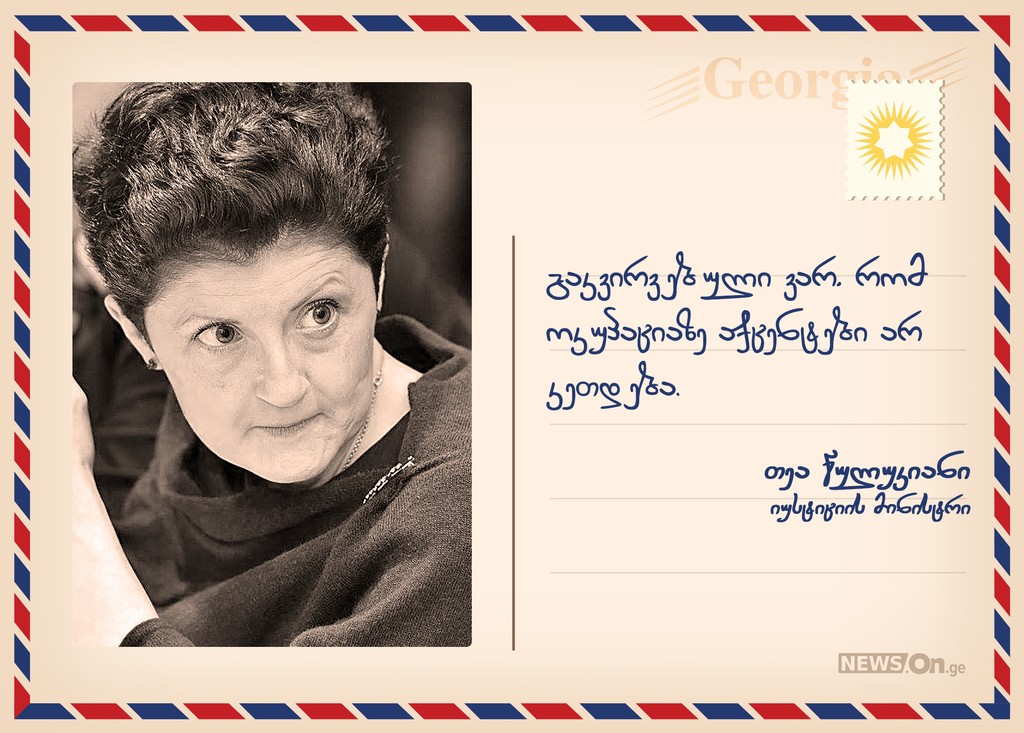 Georgia
გაკვირვებული ვარ, რომ
ოკუპაციაზე აქცენტები არ
კეთდება.
თეა წულუკიანი
იუსტიციის მინისტრი
NEWS.On.ge